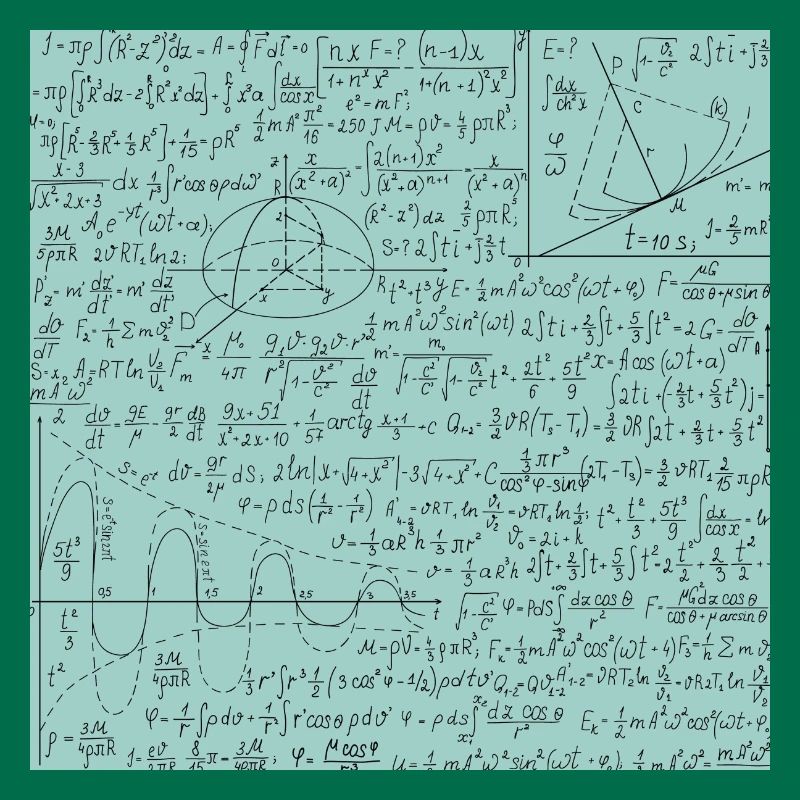 J = πρ∫(R²-z²)²dz = A = ∮F dl = 0 [n x F=? (n-1)x
E=?
P √1-v²/c² 2∫ti+j 2/3
1+nˣx² 1+(n+1)²x²
= πρ[∫R³dz-2∫R²x²dz]+∫x³a ∫dx/cosx
e²=mF²;
∫dx/ch²x
C (k)
πρ[R⁵-2/3R⁵+1/5R⁵]+1/15=ρR⁵ 1/2 mA² π²/16 = 250 J M=ρV=4/5 ρπR³;
φ/ω
r
x-3/√x²+2x+3 dx 1/r³∫r'cosθρdω' z R (x/(x²+a)² = ∫2(n+1)x²/(x²+a)ⁿ⁺¹ = x/(x²+a)ⁿ
m'= m
M
A₀e^-γt(ωt+a); 2 (R²-z²)dz 2/5 ρπR⁵;
t=10 s; J=2/5 mR²
3M/5ρπR 2νRT₁ln2; S=? 2∫ti+j 2/3 t
0 x y
0
P'z=m' dz'/dt'=m' dz/dt' Rt²+t³y E=1/2 mA²ω²cos²(ωt+φ₀) F=μG/cosθ+μsinθ
D
dv/dT F₂=1/h Σmv₂² 1/2 mA²ω²sin²(ωt) 2∫ti+2/3∫t+5/3∫t²=2G=dv/dT
S=x₂ A=RT ln V₂/V₁ Fm x = μ₀/4π g₁v·g₂v·r²/r²√1-v²/c² dv/dt m'= m₀/√1-c²/c'√1-v²/c² t²+2t²/6+5t²/9 x=A cos(ωt+a)
mA²ω²/2 ∫2ti+(-2/3t+5/3t²)j=
dv/dt=gE/μ-gr/2 dB/dt 9x+51/x²+2x+10+1/57 arctg x+1/3+C Q₁₋₂=3/2 νR(T₃-T₁)=3/2 νR∫2t+2/3t+5/3t²
S=e⁻ˣ dv=gr/2μ dS; 2ln|x+√4+x²|-3√4+x²+C 1/3πr³/cos²φ-sinφ(2T₁-T₃)=3/2 νRT₁ 2/15 πρR
φ=ρds(1/r²-1/r²) A'₄₋₂=νRT₁ ln V₁/V₂=νRT₁ ln 1/2; t²+t²/3+5t³/9 ∫dx/cosx=ln
S=eᵗsin2πt
S=sin2πt
v=1/3 aR³h 1/3πr² V₀=2i+k
5t³/9
v=1/3 aR³h 2∫t+2/3∫t+5/3∫t²=2t²/2+2/3 t²/2+
0,5 1 1,5 2 2,5 3 3,5 t
√1-c²/C² φ=Pds∫dz cosθ/r² F=μG²dz cosθ/cosθ+μarcsinθ
t²/3
M=ρV=4/3ρπR³; Fₖ=1/2mA²ω²cos²(ωt+4)F₃=1/h Σmv₂
t² 3M/4ρπR 1/3r'∫r³1/2(3cos²φ-1/2)ρdtv' Q₁₋₂=QV₁₋₂A'₁₋₂=νRT₂ln V₂/V₁=νR2T₁ln V₁/V₂
φ=1/r∫ρdv+1/r²∫r'cosθρdv' φ=ρds∫dz cosθ/r² Eₖ=1/2mA²ω²cos²(ωt+φ₀
ρ=3M/4ρπR J=ev/2πR 8/15π=3M/4ρπR; φ=μcosφ/r³ U=1/2mA²ω²sin²(ωt+φ₀); 1/2mA²ω²=mA²ω²